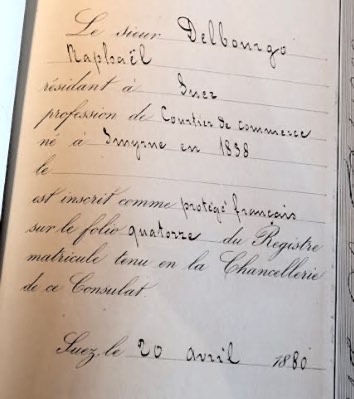 Le sieur Delbourgo
Raphaël
résidant à Suez
profession de Courtier de commerce
né à Smyrne en 1838
le
est inscrit comme protégé français
sur le folio quatorze du Registre
matricule tenu en la Chancellerie
de ce Consulat.
Suez, le 20 avril 1880